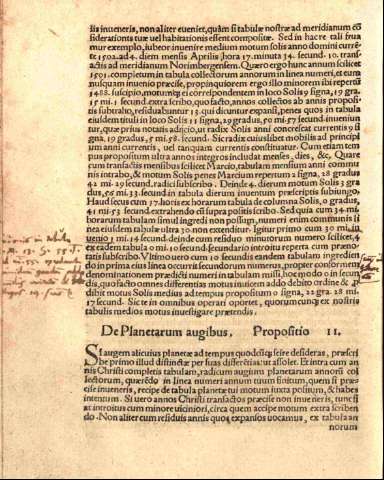 iis inueneris, non aliter eueniet, quàm si tabulæ nostræ ad meridianum cõ
siderationis tuæ vel habitationis essent compositæ. Sed in hac re tali frua
mur exemplo, iubeor inuenire medium motum solis anno domini currẽ
te 1502. ad 4. diem mensis Aprilis, hora 17. minuta 34. secund. 10. trans-
actis ad meridianum Norimbergensem. Quæro ergo hunc annum scilicet
1501. completum in tabula collectorum annorum in linea numeri, et cum
nusquam inuenio præcise, propinquiorem ergo illo minorem ibi repertũ
1488. suscipio, motumq; ei correspondentem in loco Solis 9 signa, 19 gra.
5 mi. 1 secund. extra scribo, quo facto, annos collectos ab annis proposi-
tis subtraho, residuabuntur 13 qui dicuntur expansi, penes quos in tabula
eiusdem tituli in loco Solis 11 signa, 29 gradus, 50 mi. 57 secund. inueniun
tur, quæ prius notatis adijcio, ut radix Solis anni concrescat currentis 9 si
gna, 19 gradus, 5 mi. 58. secund. Sic radix cuiuslibet mobilis ad principi
um anni currentis, vel tanquam currentis constituatur. Cum etiam tem
pus propositum ultra annos integros includat menses, dies, &c. Quare
cum transactis mensibus scilicet Marcio, tabulam mensium anni commu
nis intrabo, & motum Solis penes Marcium repertum 2 signa, 28 gradus
42 mi. 29 secund. radici subscribo. Deinde 4. dierum motum Solis 3 gra
dus, 56 mi. 33. secund. in tabula dierum inuentum præscriptis subiungo.
Haud secus cum 17. horis ex horarum tabula de columna Solis, 0 gradus,
41 mi. 53 secund. extrahendo ei supra positis scribo. Sed quia cum 34 mi.
horarum tabulam simul ingredi non possum, numeri enim communis li
nea eiusdem tabulæ ultra 30. non extenditur. Igitur primo cum 30 mi. in
uenio 1 mi. 14 secund. deinde cum residuo minutorum numero scilicet, 4
ex eadem tabula 0 mi. 10 secund. secundario introitu reperta cum præno-
tatis subscribo. Vltimo vero cum 10 secundis eandem tabulam ingredien
do in prima eius linea occurrit secundorum numerus, propter conformem
denominationem prædicti numeri in tabulam missi, hoc modo 0 in secun
dis, quo facto omnes differentias motus inuicem addo debito ordine & p
dibit motus Solis medius ad tempus propositum 0 signa, 22 gra. 28 mi.
17 secund. Sic te in omnibus operari oportet, quorumcunq; ex nostris
tabulis medios motus inuestigare prætendis.
De Planetarum augibus, Propositio II.
Si augem alicuius planetæ ad tempus quodcũq; scire desideras, præscri
be primo illud distinctæ per suas differẽtias: ut assolet. Et intra cum an
nis Christi completis tabulam, radicum augium planetarum annorũ col
lectorum, quærẽdo in linea numeri annum tuum finitum, quem si præ
cise inueneris, recipe de tabula planetæ tui motum iuxta positum, & habes
intentum. Si uero annos Christi transactos præcise non inueneris, tunc si
at introitus cum minore viciniori, circa quem accipe motum extra scriben
do. Non aliter cum residuis annis quos expansos uocamus, ex tabula an
norum